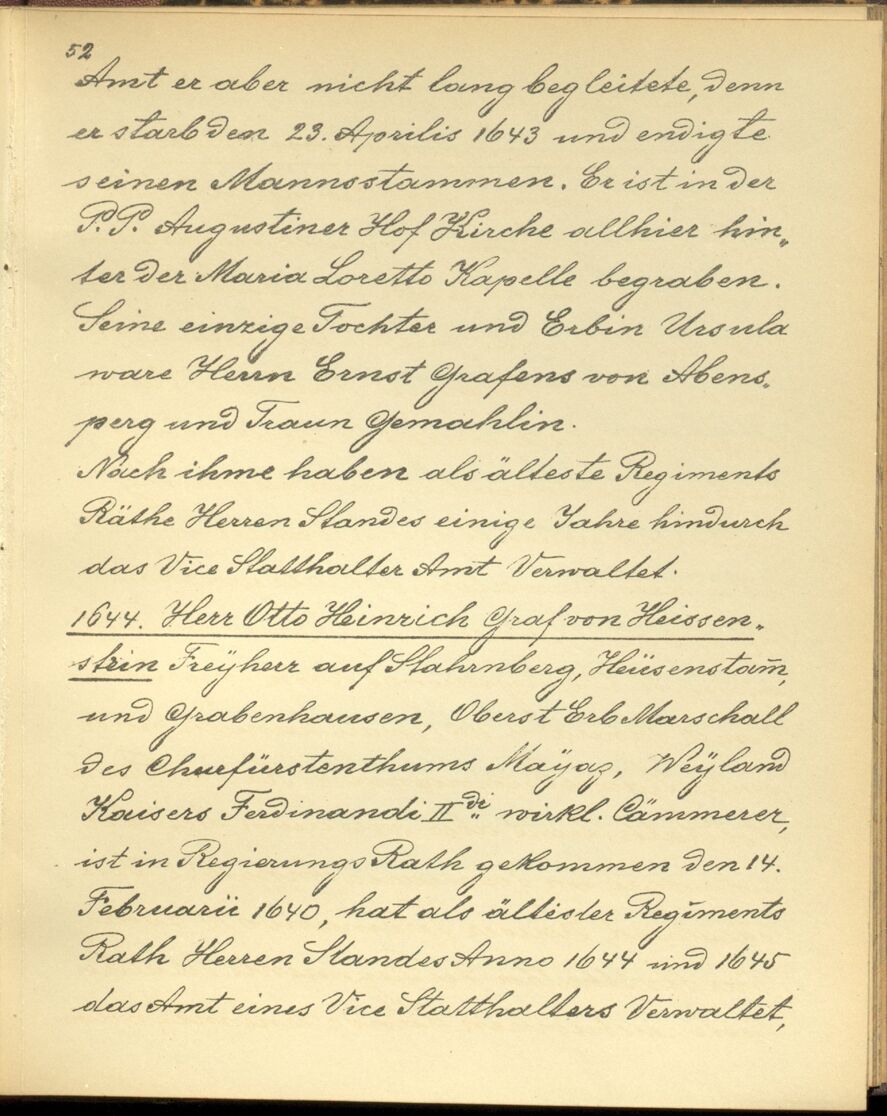 52
Amt er aber nicht lang begleitete, denn
er starb den 23. Aprilis 1643 und endigte
seinen Mannsstammen. Er ist in der
P. P. Augustiner Hof Kirche allhier hin„
ter der Maria Loretto Kapelle begraben.
Seine einzige Tochter und Erbin Ursula
ware Herrn Ernst Grafens von Abens„
perg und Traun Gemahlin.
Nach ihme haben als älteste Regiments
Räthe Herren Standes einige Jahre hindurch
das Vice Statthalter Amt Verwaltet.
1644. Herr Otto Heinrich Graf von Heissen„
stein Freÿherr auf Stahrnberg, Heüsenstam̅,
und Grabenhausen, Oberst Erb Marschall
des Churfürstenthums Maÿaz, Weÿland
Kaisers Ferdinandi II di: wirkl. Cämmerer,
ist in Regierungs Rath gekommen den 14.
Februarii 1640, hat als ältester Regiments
Rath Herren Standes Anno 1644 und 1645
das Amt eines Vice Statthalters Verwaltet,